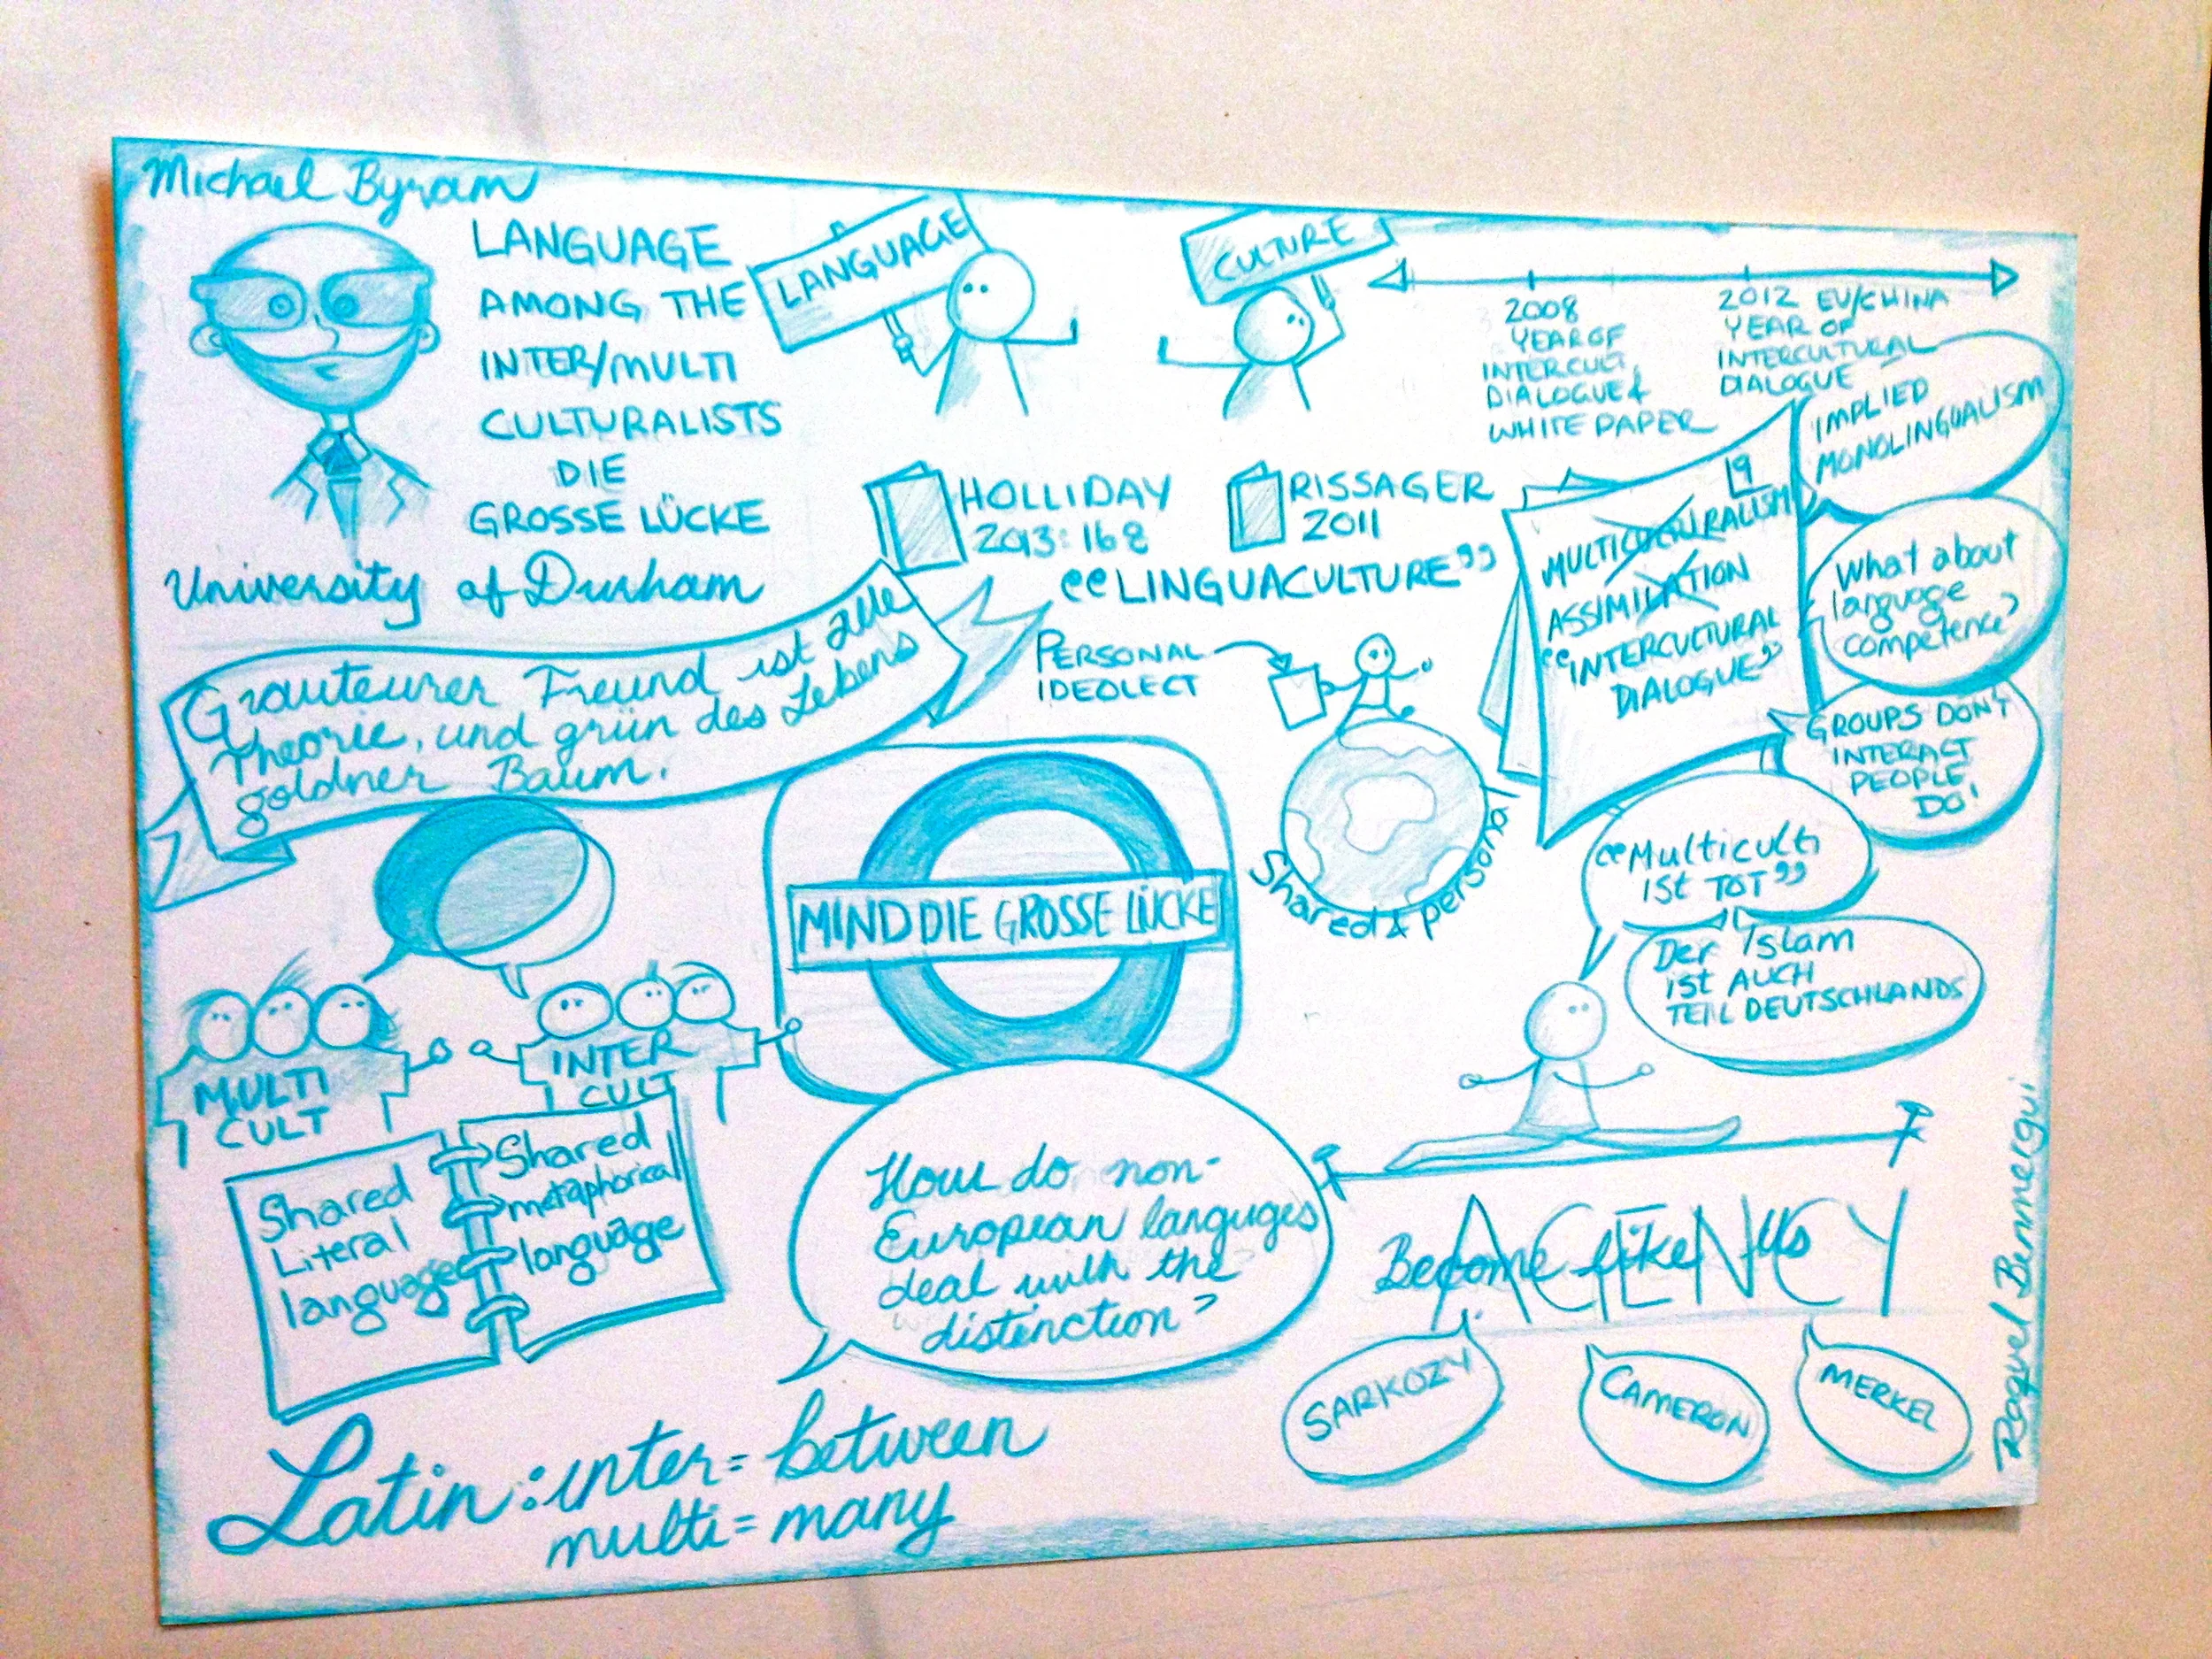 Michael Byram
LANGUAGE
AMONG THE
INTER/MULTI
CULTURALISTS
DIE
GROSSE LÜCKE
University of Durham
LANGUAGE
CULTURE
2008
YEAR OF
INTERCULT.
DIALOGUE &
WHITE PAPER
2012 EU/CHINA
YEAR OF
INTERCULTURAL
DIALOGUE
HOLLIDAY
2013:168
RISSAGER
2011
"LINGUACULTURE"
PERSONAL
IDEOLECT
Shared & personal
19
MULTICULTURALISM
ASSIMILATION
"INTERCULTURAL
DIALOGUE"
IMPLIED
MONOLINGUALISM
What about
language
competence?
GROUPS DON'T
INTERACT
PEOPLE
DO!
"Multiculti
ist TOT"
Der Islam
ist AUCH
TEIL DEUTSCHLANDS
Grauteurer Freund ist alle
Theorie, und grün des Lebens
goldner Baum.
MIND DIE GROSSE LÜCKE
MULTI
CULT
INTER
CULT
Shared
Literal
language
Shared
metaphorical
language
How do non-
European languges
deal with the
distinction?
AGENCY
Become like us
SARKOZY
CAMERON
MERKEL
Latin: inter = between
multi = many
Raquel Bennergui